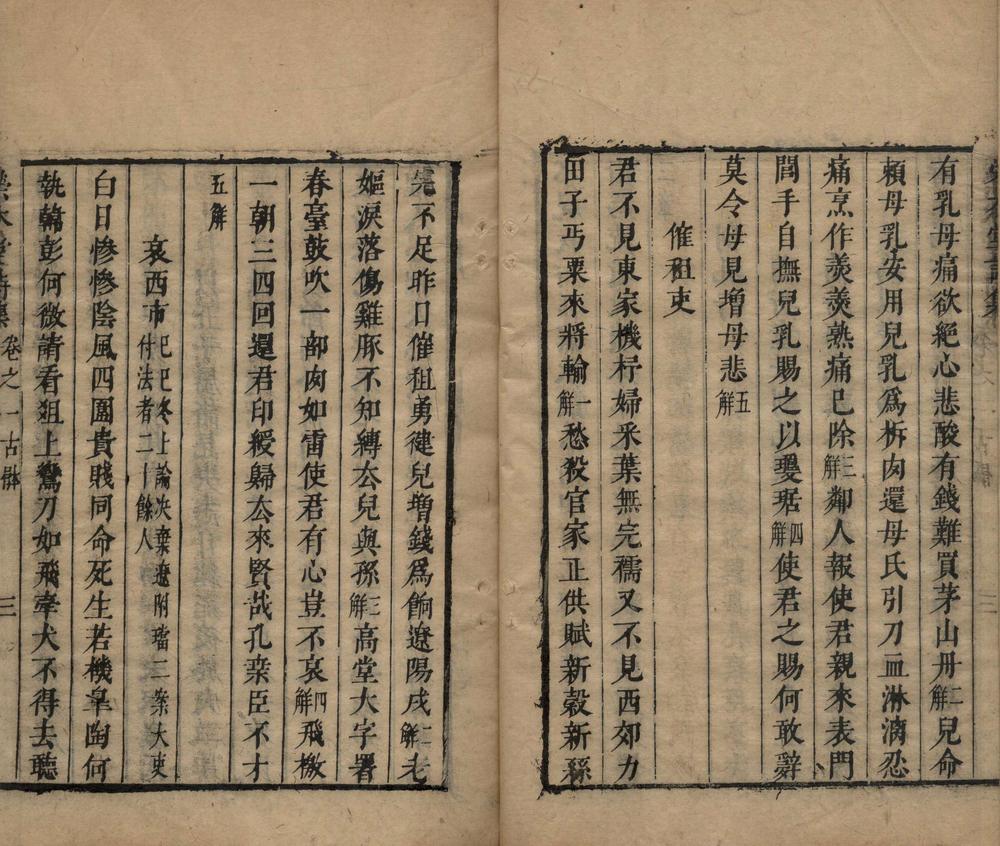 有乳母痛欲絕心悲酸有錢難買茅山丹二解兒命
賴母乳安用兒乳爲析肉還母氏引刀血淋漓忍
痛烹作羮羮熟痛已除三解鄰人報使君親來表門
閭手自撫兒乳賜之以瓊琚四解使君之賜何敢辭
莫令母見增母悲五解
催租吏
君不見東家機杼婦釆葉無完襦又不見西郊力
田子丐粟來將輸一解愁殺官家正供賦新穀新絲
完不足昨日催租勇健兒增錢爲餉遼陽戍二解老
嫗淚落傷雞豚不知縛去兒與孫三解高堂大字署
春臺鼓吹一部肉如雷使君有心豈不哀四解飛檄
一朝三四回還君印綬歸去來賢哉孔棻臣不才
五解
哀西市己巳冬上論决棄遼附璫二案大吏什法者二十餘人
白日慘慘陰風四圄貴賤同命死生若機皐陶何
執韓彭何微請看俎上鸞刀如飛牽犬不得去聽
卷之一古體 三